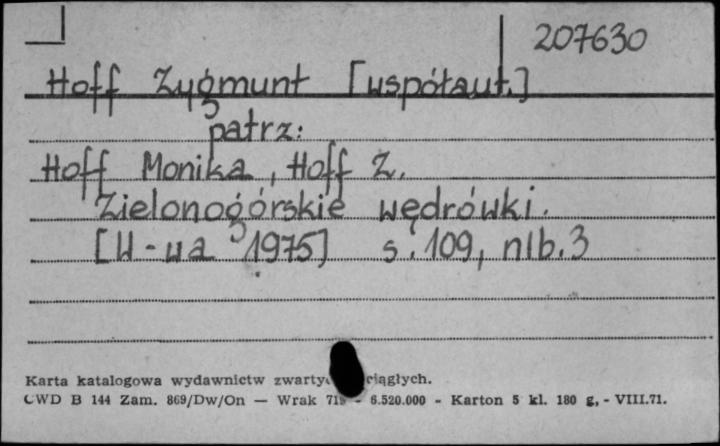 207630
Hoff Zygmunt [współaut.]
patrz:
Hoff Monika, Hoff Z.
Zielonogórskie wędrówki.
[W-wa 1975] s. 109, nlb. 3
Karta katalogowa wydawnictw ciągłych.
CWD B 144 Zam. 869/Dw/On — Wrak - 6.520.000 - Karton 5 kl. 180 g, - VIII.71.